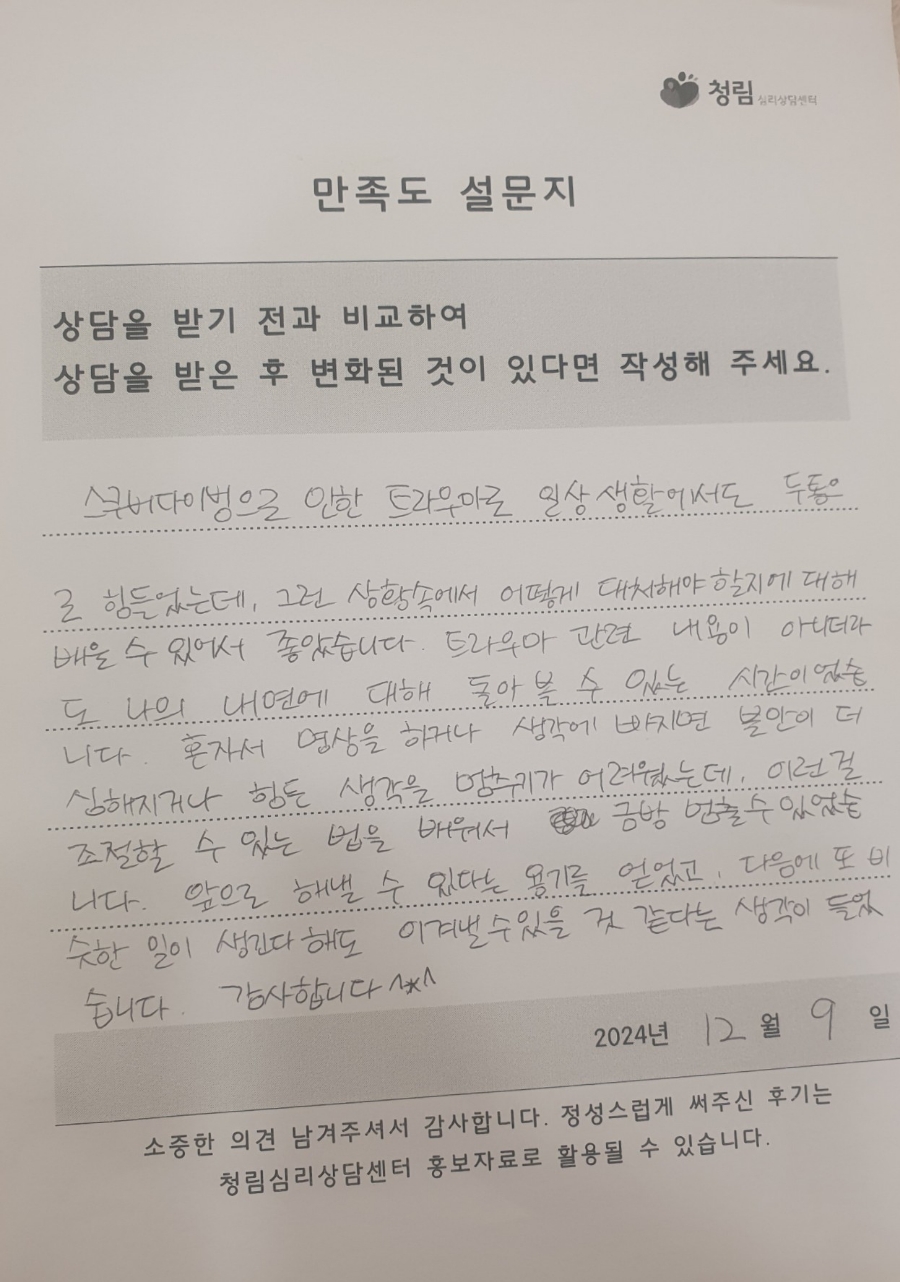 청림 심리상담센터
만족도 설문지
상담을 받기 전과 비교하여
상담을 받은 후 변화된 것이 있다면 작성해 주세요.
스쿠버다이빙으로 인한 트라우마로 일상생활에서도 두통으
로 힘들었는데, 그런 상황속에서 어떻게 대처해야 할지에 대해
배울 수 있어서 좋았습니다. 트라우마 관련 내용이 아니더라
도 나의 내면에 대해 돌아볼 수 있는 시간이었습
니다. 혼자서 명상을 하거나 생각에 빠지면 불안이 더
심해지거나 힘든 생각을 멈추기가 어려웠는데, 이런걸
조절할 수 있는 법을 배워서 금방 멈출수 있었습
니다. 앞으로 해낼 수 있다는 용기를 얻었고, 다음에 또 비
슷한 일이 생긴다 해도 이겨낼 수 있을 것 같다는 생각이 들었
습니다. 감사합니다 ^*^
2024년 12 월 9 일
소중한 의견 남겨주셔서 감사합니다. 정성스럽게 써주신 후기는
청림심리상담센터 홍보자료로 활용될 수 있습니다.